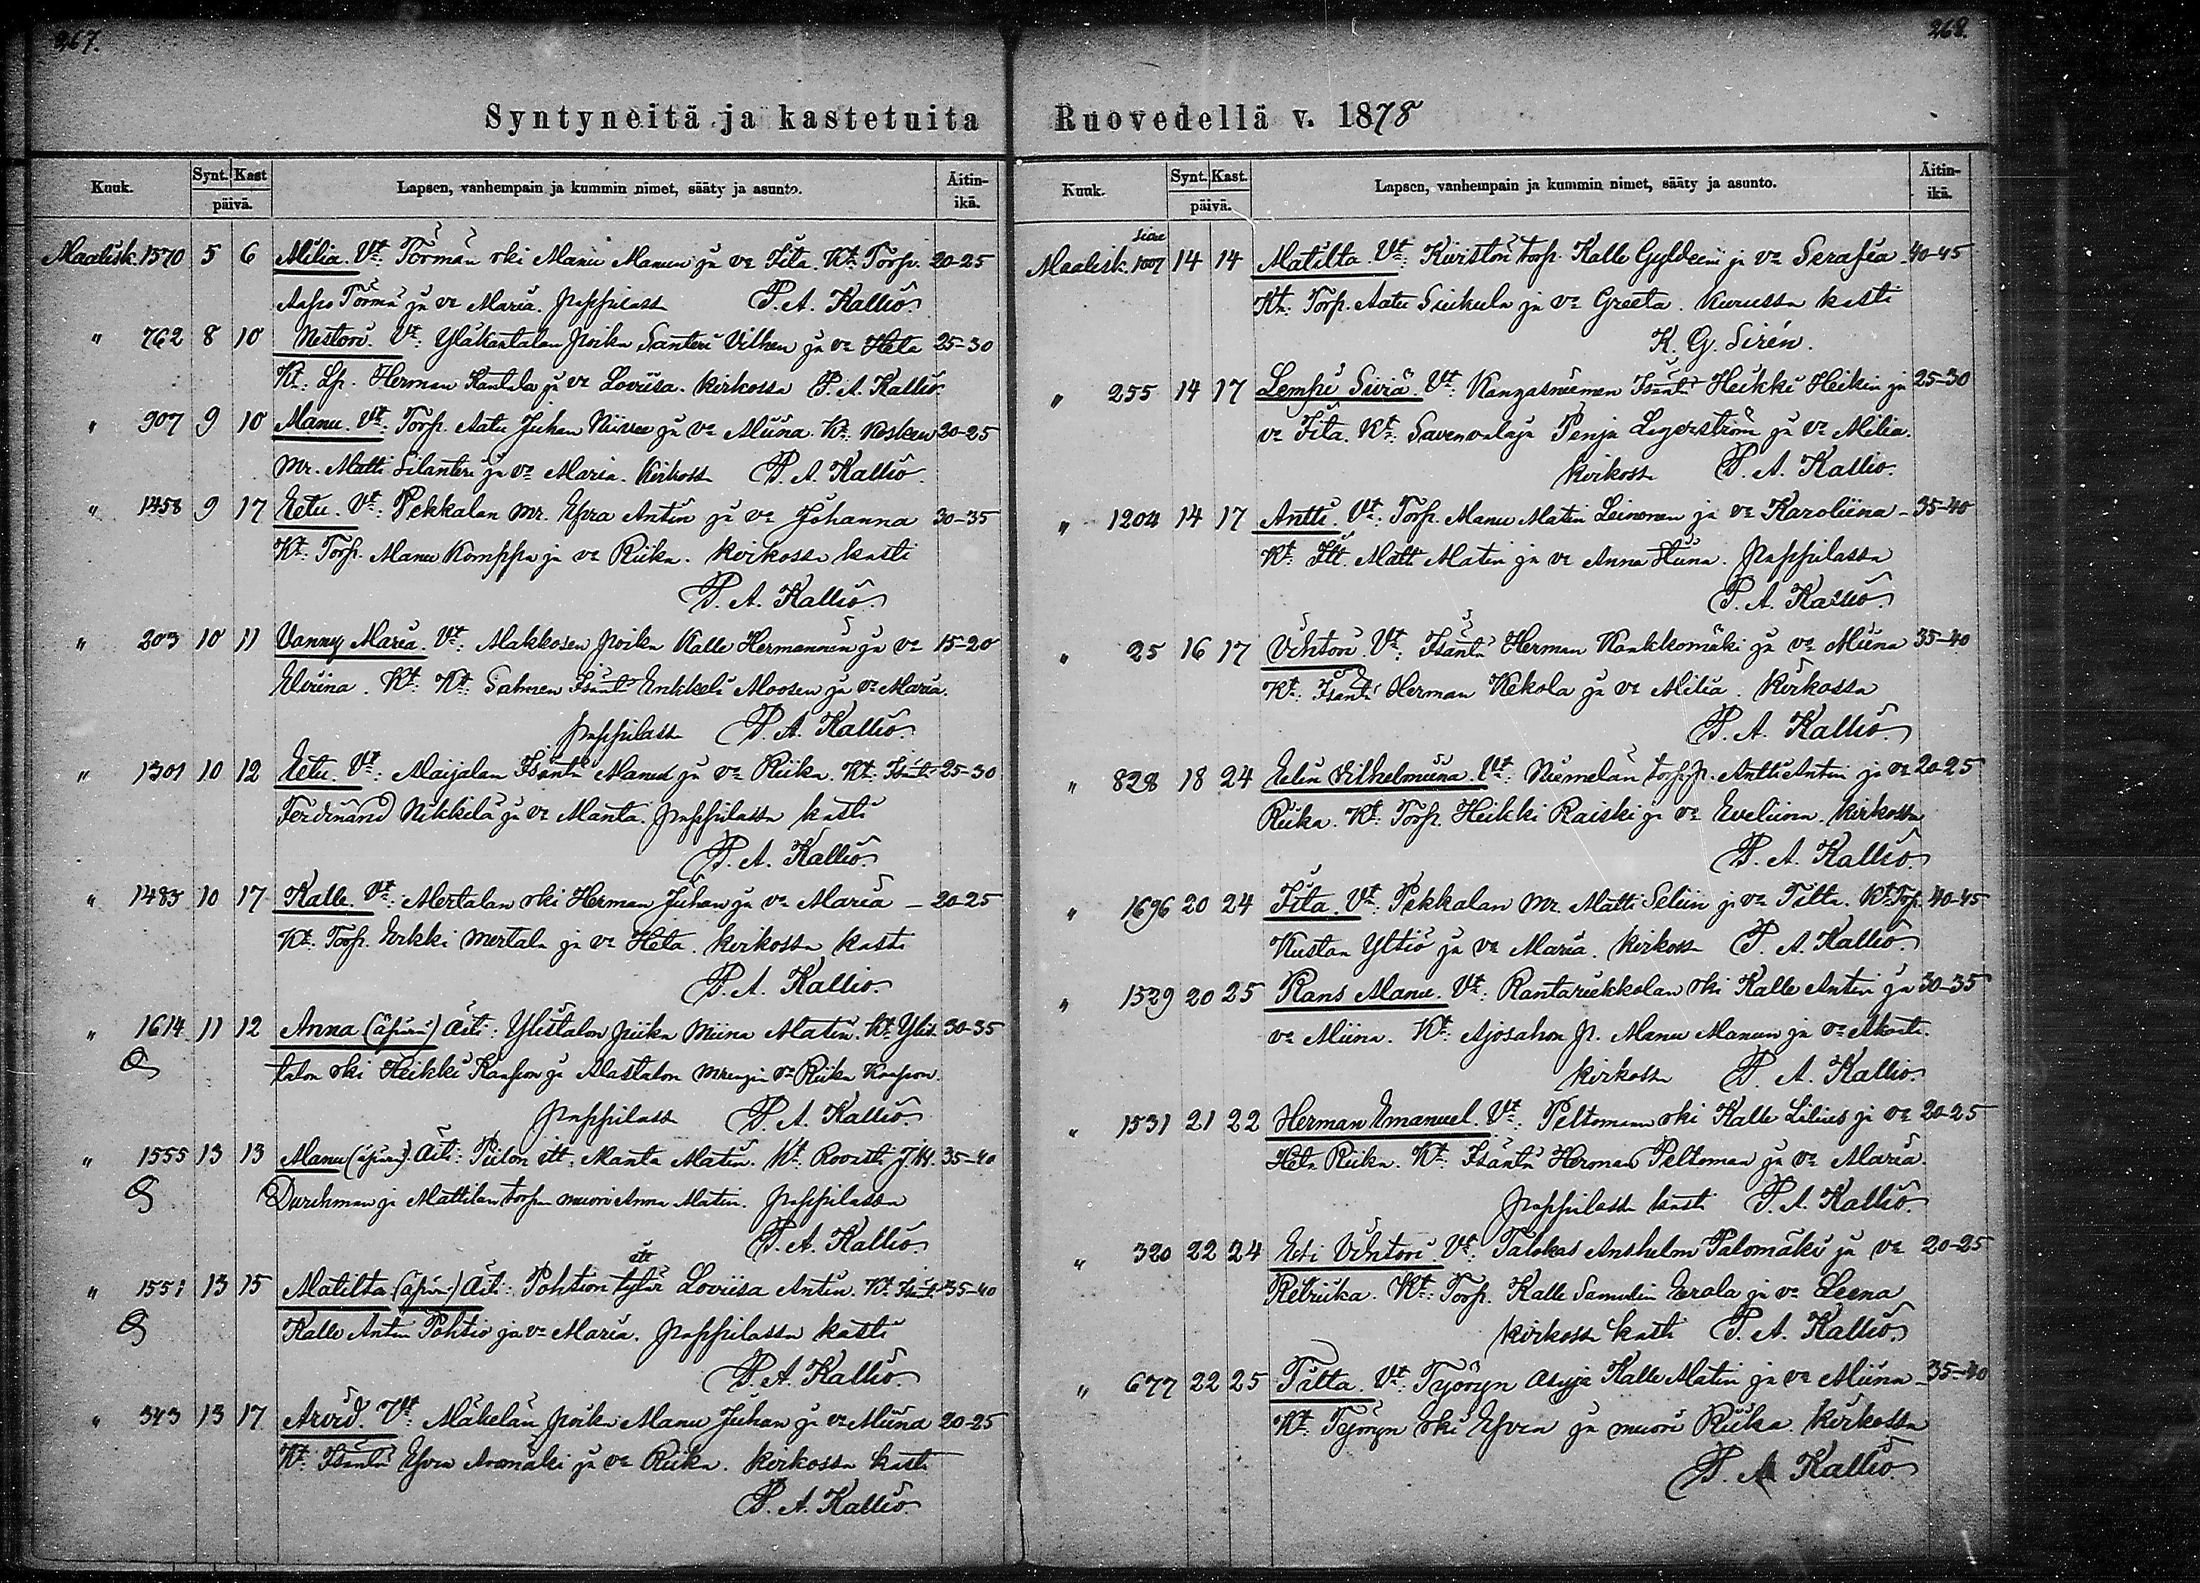 267.
Syntyneitä ja kastetuita
Kuuk. Synt. Kast päivä. Lapsen, vanhempain ja kummin nimet, sääty ja asunto. Äitin-ikä.
Maalisk. 1570 5 6 Milia. Vt: Törmän rki Manu Manun ja vo Fita. Kt: Torp. 20-25
Törmä ja vo Maria. Pappilass P. A. Kallio.
" 762 8 10 Nestori. Vt: Yläkantalan poika Santeri Vilhen ja vo Heta 25-30
Kt: Lp. Herman Kantala ja vo Loviisa. kirkossa P. A. Kallio.
" 907 9 10 Manu. Vt: Torp. Aatu Juhan ja vo Miina. Kt: Kosken 20-25
Mr. Matti Silanteri ja vo Maria. Kirkoss P. A. Kallio.
" 1458 9 17 Eetu. Vt: Pekkalan Mr. Efra Antin ja vo Johanna 30-35
Kt: Torp. Manu Komppa ja vo Riika. kirkossa kasti
P. A. Kallio.
" 203 10 11 Vanny Maria. Vt: Makkosen poika Kalle Hermannin ja vo 15-20
Elviina. Kt: Kt: Salmen Isäntä Enkkeli Moosen ja vo Maria.
pappilass P. A. Kallio.
" 1301 10 12 Eetu. Vt: Maijalan Isäntä Manu ja vo Riika. Kt: Isäntä 25-30
Ferdinand Nikkilä ja vo Manta. pappilassa kasti
P. A. Kallio.
" 1483 10 17 Kalle. Vt: Mertalan rki Herman Juhan ja vo Maria - 20-25
Kt: Torp. Erkki Mertala ja vo Heta. kirkossa kasti
P. A. Kallio.
" 1614 11 12 Anna (äpärä) Äiti: Ylistalon piika Miina Matin. Kt: Ylis- 30-35
talon rki Heikki ja Alastalon vo Riika
pappilass P. A. Kallio.
" 1555 13 13 Manu (äpärä). Äiti: Piilon itt: Manta Matin. Kt: Rovasti 35-40
Durchman ja Mattilan torpn muori Anna Matin. pappilassa
P. A. Kallio.
" 1551 13 15 Matilta (äpärä) Äiti: Pohtion tytär Loviisa Antin. Kt: Isäntä 35-40
Kalle Antin Pohtio ja vo Maria. pappilassa kasti
P. A. Kallio.
" 343 13 17 Arvid. Vt: Mäkelän poika Manu Juhan ja vo Miina 20-25
Kt: Isäntä Efra ja vo Riika. kirkossa kasti
P. A. Kallio.
268.
Ruovedellä v. 1878
Kuuk. Synt. Kast. päivä. Lapsen, vanhempain ja kummin nimet, sääty ja asunto. Äitin-ikä.
Maalisk. 1007 14 14 Matilta. Vt: Kiviston torp. Kalle Gyldeeni ja vo Serafia 40-45
Kt: Torp. Aatu Siukula ja vo Greeta. Kurussa kasti
K. G. Sirén.
" 255 14 17 Lempi Siviä. Vt: Kangasniemen Isäntä Heikki Heikin ja 25-30
vo Fita. Kt: Savenvalaja Penja Lagerström ja vo Milia.
kirkossa P. A. Kallio.
" 1204 14 17 Antti. Vt: Torp. Manu Matin Leinonen ja vo Karoliina - 35-40
Kt: Itt. Matt Matin ja vo Anna Stiina. pappilassa
P. A. Kallio.
" 25 16 17 Vihtori. Vt: Isäntä Herman Kankkomäki ja vo Miina 35-40
Kt: Isäntä Herman Kekola ja vo Milia. Kirkossa
P. A. Kallio.
" 828 18 24 Eelin Vilhelmiina. Vt: Niemelän torp. p. Antti Antin ja vo 20-25
Riika. Kt: Torp. Heikki Raiski ja vo Eveliina. kirkossa
P. A. Kallio.
" 1696 20 24 Fita. Vt: Pekkalan Mr. Matti Seliin ja vo Tilta. Kt: Torp. 40-45
Kustan Yltiö ja vo Maria. kirkoss P. A. Kallio.
" 1529 20 25 Rans Manu. Vt: Rantariekkolan rki Kalle Antin ja 30-35
vo Miina. Kt: Ajosahon p. Manu Manun ja vo
kirkossa P. A. Kallio.
" 1531 21 22 Herman Emanuel. Vt: Peltoman rki Kalle Lilius ja vo 20-25
Heta Riika. Kt: Isäntä Herman Peltoman ja vo Maria.
pappilassa kasti P. A. Kallio.
" 320 22 24 Eeti Vihtori. Vt: Talokas Anshelm Palomäki ja vo 20-25
Retriika. Kt: Torp. Kalle Samulin Eerola ja vo Leena
kirkossa kasti P. A. Kallio.
" 677 22 25 Tilta. Vt: Työryn Asuja Kalle Matin ja vo Miina - 35-40
Kt: Työryn rki Efra ja muori Riika. Kirkossa
P. A. Kallio.